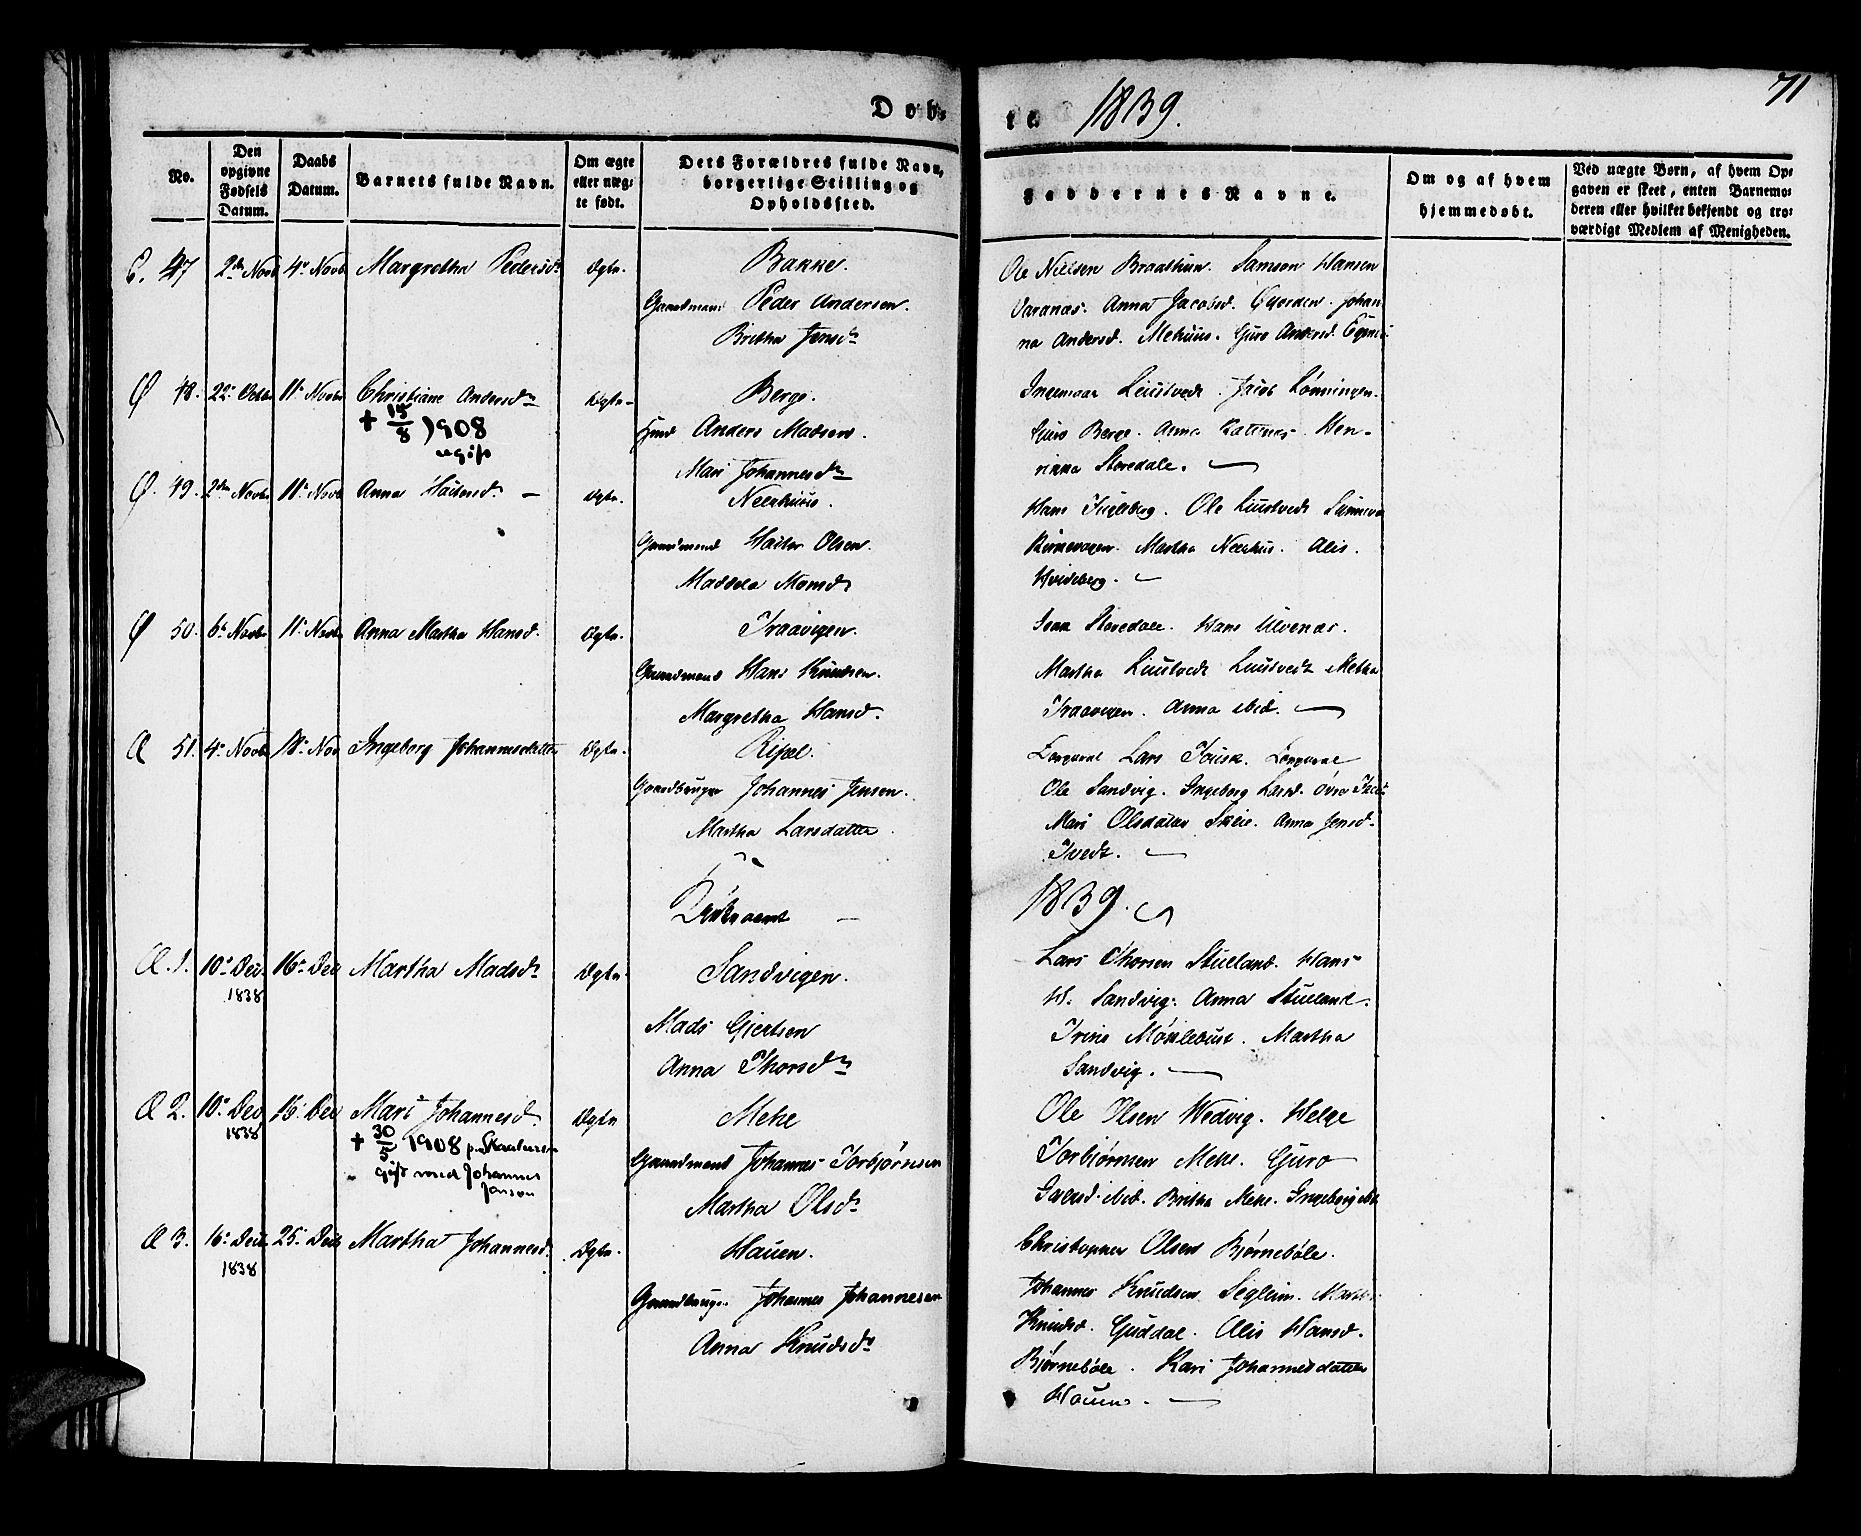 Døb-
te 1839.
71
No.
Den opgivne Fødsels Datum.
Daabs Datum.
Barnets fulde Navn.
Om ægte eller uæg- te født.
Dets Forældres fulde Navn, borgerlige Stilling og Opholdssted.
Faddernes Navne.
Om og af hvem hjemmedøbt.
Ved uægte Børn, af hvem Op- gaven er skeet, enten Barnemo- deren eller hvilket bekjendt og tro- værdigt Medlem af Menigheden.
47 2den Novb 4e Novb Margretha Pedersdr Ægte. Bakke.
Gaardmand Peder Andersen.
Britha Jensdr
Ole Nielsen Braathun. Samson Hansen
Varanæs. Anna Jacobsd. Johan
na Andersd. Mehuus. Guro Andersd.
Ø 48. 22e Octbr 11e Novbr Christiane Andersdr Ægte Berge.
+ 15/8 1908
ugift
Anders Madsen.
Mari Johannesdr
Ingemaar Liustvedt. Jacob Lønningen.
Guro Berge. Anna Hen-
rikka Storedale.
Ø. 49. 2den Novbr 11e Novb Anna Ægte. Neerhuus.
Gaardmand Olsen.
Maddela Monsdr
Hans Fugleberg. Ole Liustvedt Sunneva
Martha Neerhus. Alis.
Hvideberg.
Ø 50. 6e Novbr 11e Novbr Anna Martha Hansd. Ægte. Traavigen.
Gaardmand Hans Knudsen.
Margretha Hansd.
Storedale. Hans Ulvenæs.
Martha Liustvedt Liustvedt Metha
Traavigen. Anna ibid.
Æ 51. 4e Novbr 18e Nov Ingeborg Johannesdatter Ægte. Ripel.
Gaardbruger Johannes Jensen.
Martha Larsdatter.
Lars Tousk.
Ole Sandvig. Ingeborg Larsd. Øvre
Mari Olsdatter Skeie. Anna Jensd.
Tvedt.
Kirkeaaret
1839.
Æ. 1. 10e Dec. 16e Dec Martha Madsdr Ægte Sandvigen.
1838
Mads Gjertsen
Anna Thorsdr
Lars Thorsen Stueland. Hans
H. Sandvig. Anna Stueland.
Trine Møklebust. Martha
Sandvig.
Æ 2. 10e Dec 16e Dec Mari Johannesd. Ægte Mehe
1838
+ 30/5 1908
gift med Johannes
Jensen
Gaardmand Johannes Torbjørnsen
Martha Olsdr
Ole Olsen Wedvig. Helge
Torbjørnsen Mehe. Guro
ibid. Britha Mehe. Ingeborg ibid
Æ 3. 16e Decb 25e Decb Martha Johannesd. Ægte. Hauen.
1838
Gaardbruger Johannes Johannesen
Anna Knudsdr
Christopher Olsen Bjørnebøle.
Johannes Knudsen Segleim. Martha
Knudsd. Guddal. Alis Hansd.
Bjørnebøle. Kari Johannesdatter
Hauen.